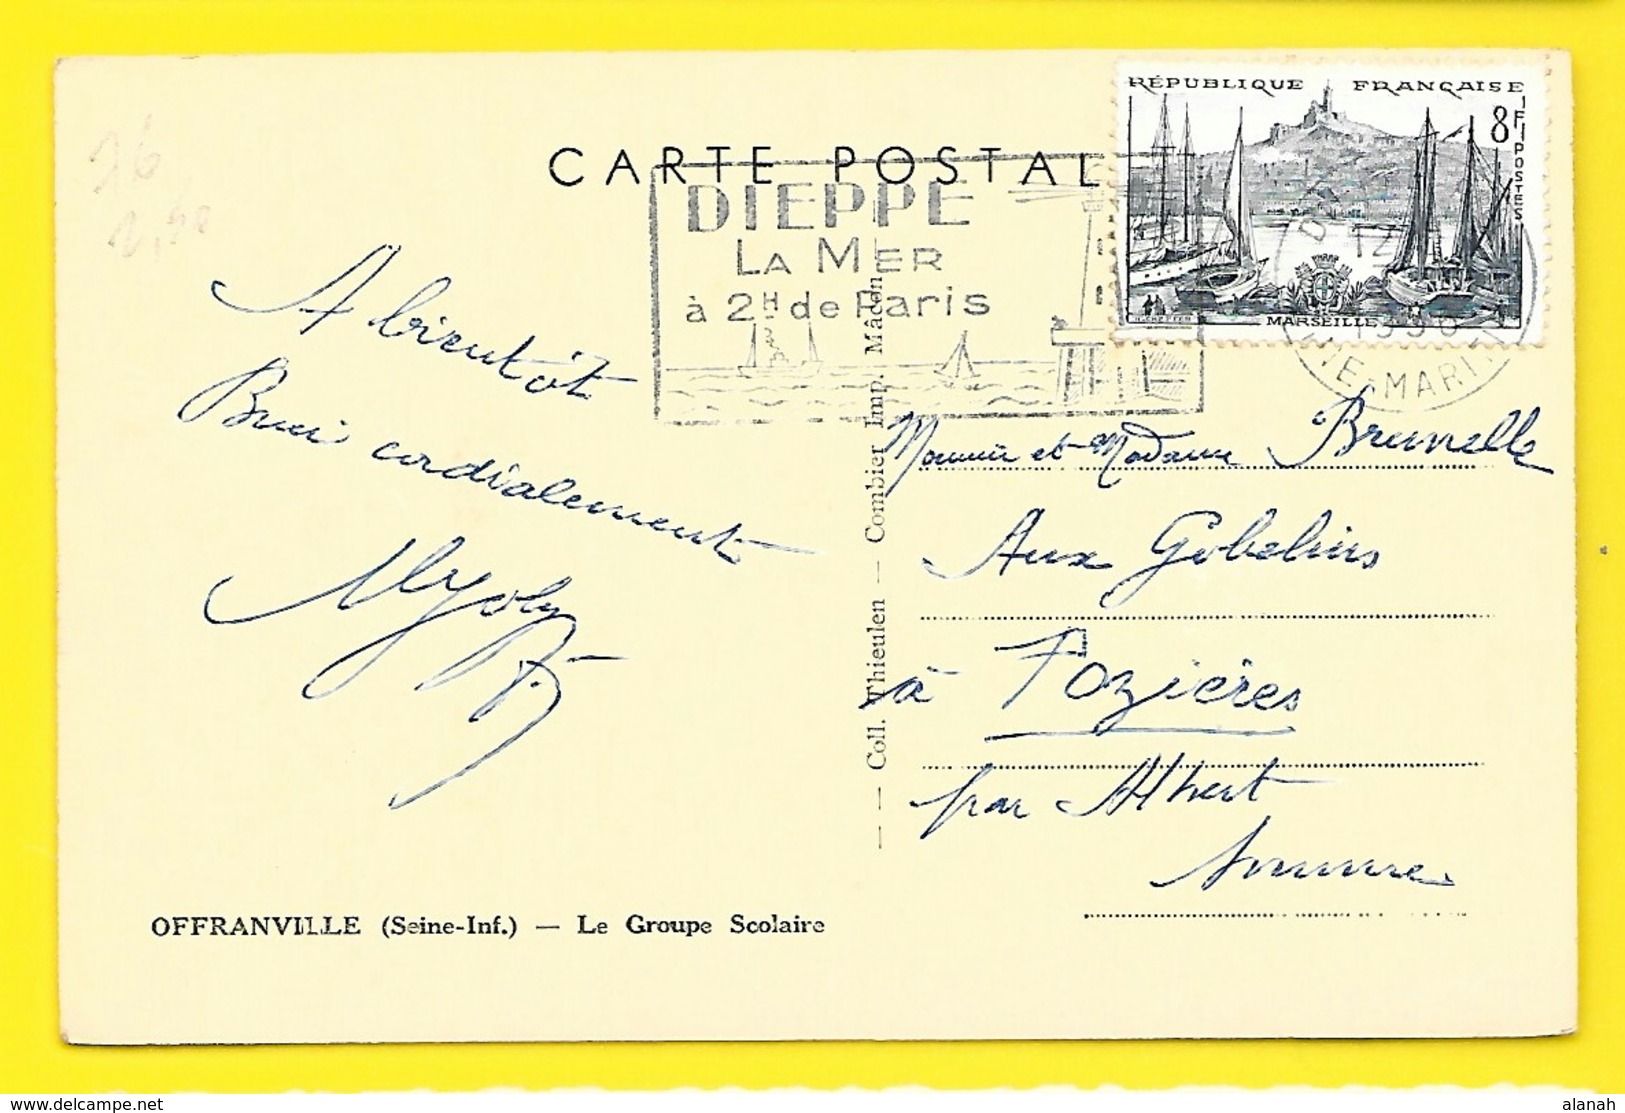 76
CARTE POSTAL
RÉPUBLIQUE FRANÇAISE
8F
POSTES
MARSEILLE
DIEPPE
LA MER
à 2H de Paris
12
MARIT
A bientôt
Bien cordialement
Monsieur et Madame Brunelle
Aux Gobelins
à Pozières
par Albert
Somme
— — Coll. Thieulen — Combier Imp. Mâcon
OFFRANVILLE (Seine-Inf.) — Le Groupe Scolaire
delcampe.net
alanah